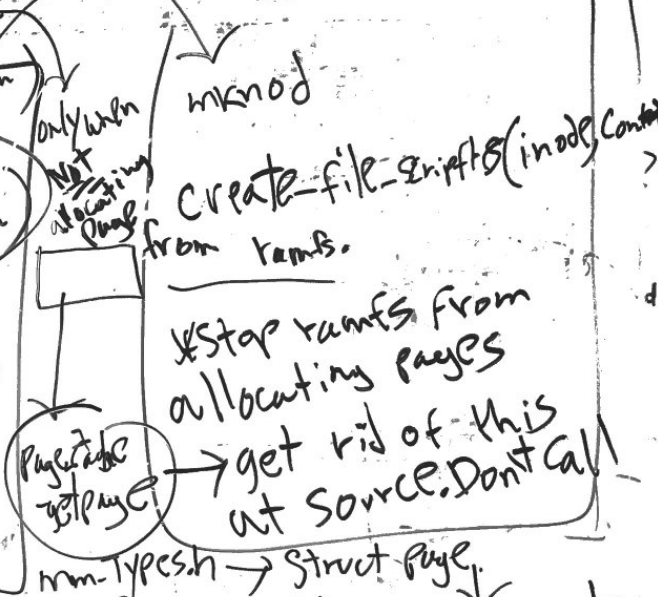 only when
Not
allocating
page
mknod
from ramfs.
*Stop ramfs from
allocating pages
get rid of this
at Source. Don't Call
getpage
mm-Types.h → Struct page.